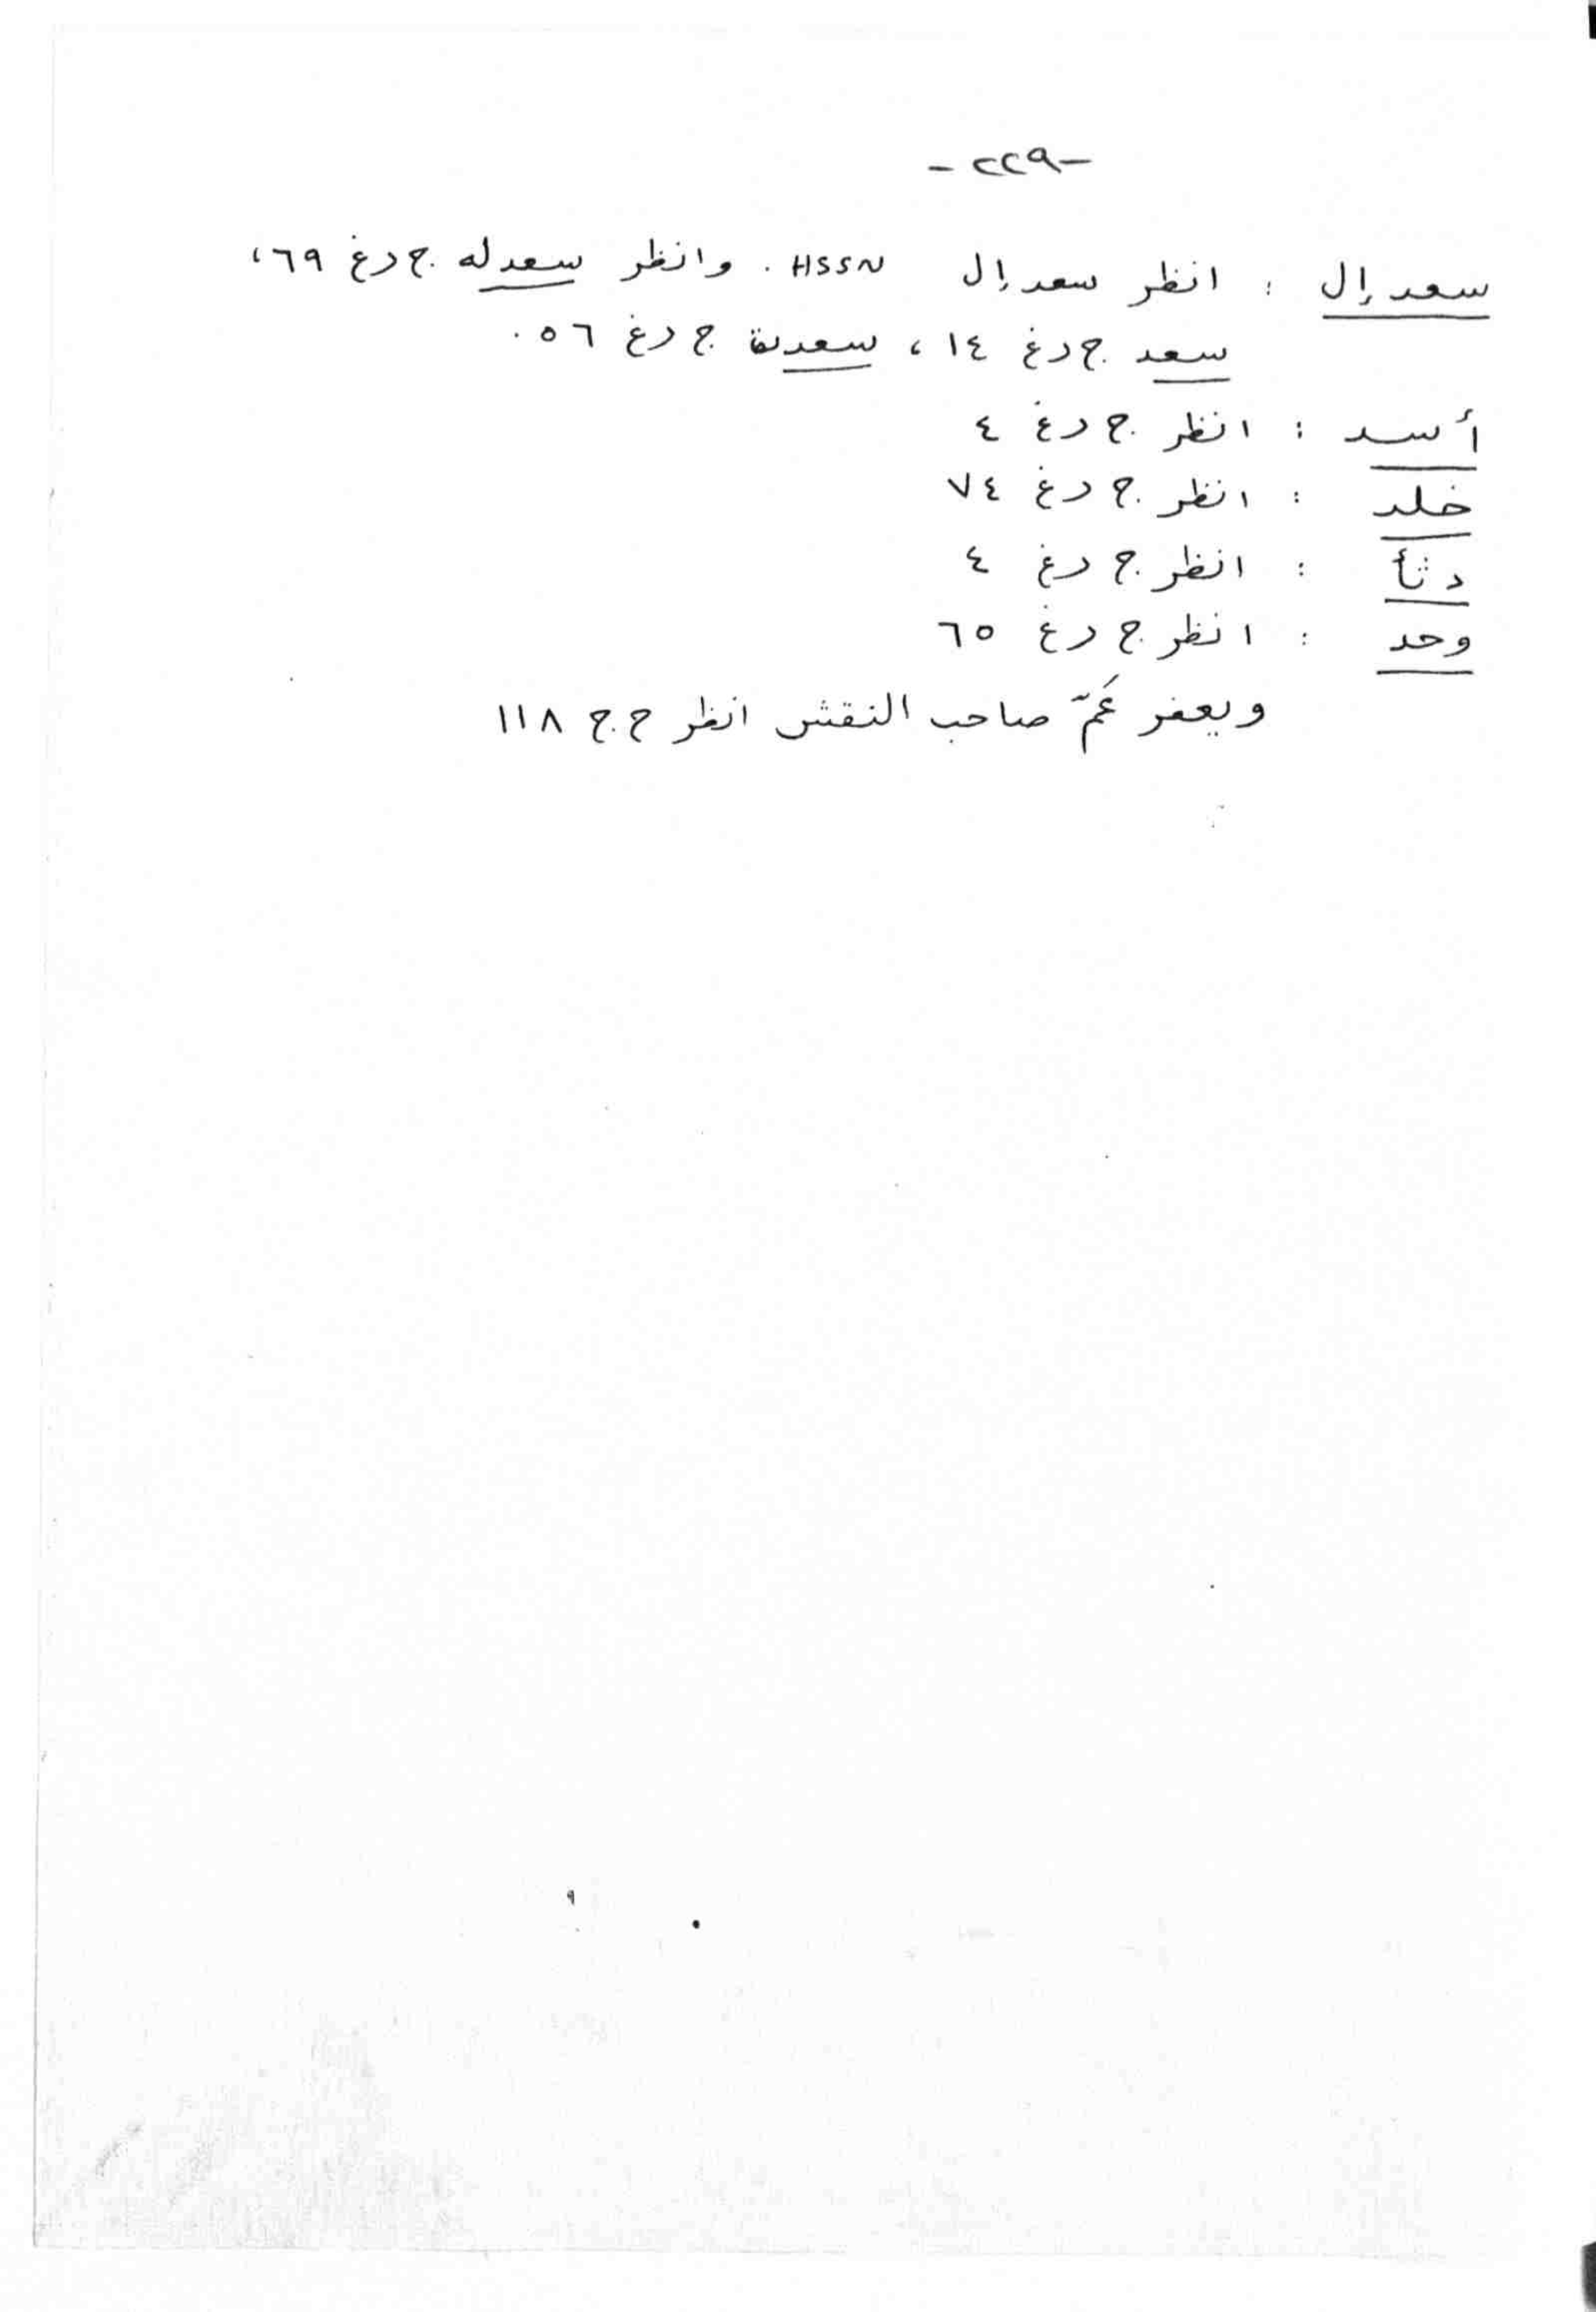 -٢٢٩-
سعد إل : انظر سعد إل HSSN . وانظر سعدله ج دغ ٦٩،
سعد ج دغ ١٤ ، سعدنة ج دغ ٥٦ .
أسد : انظر ج دغ ٤
خلد : انظر ج دغ ٧٤
دثأ : انظر ج دغ ٤
وحد : انظر ج دغ ٦٥
ويعفر عَمّ صاحب النقش انظر ح ج ١١٨